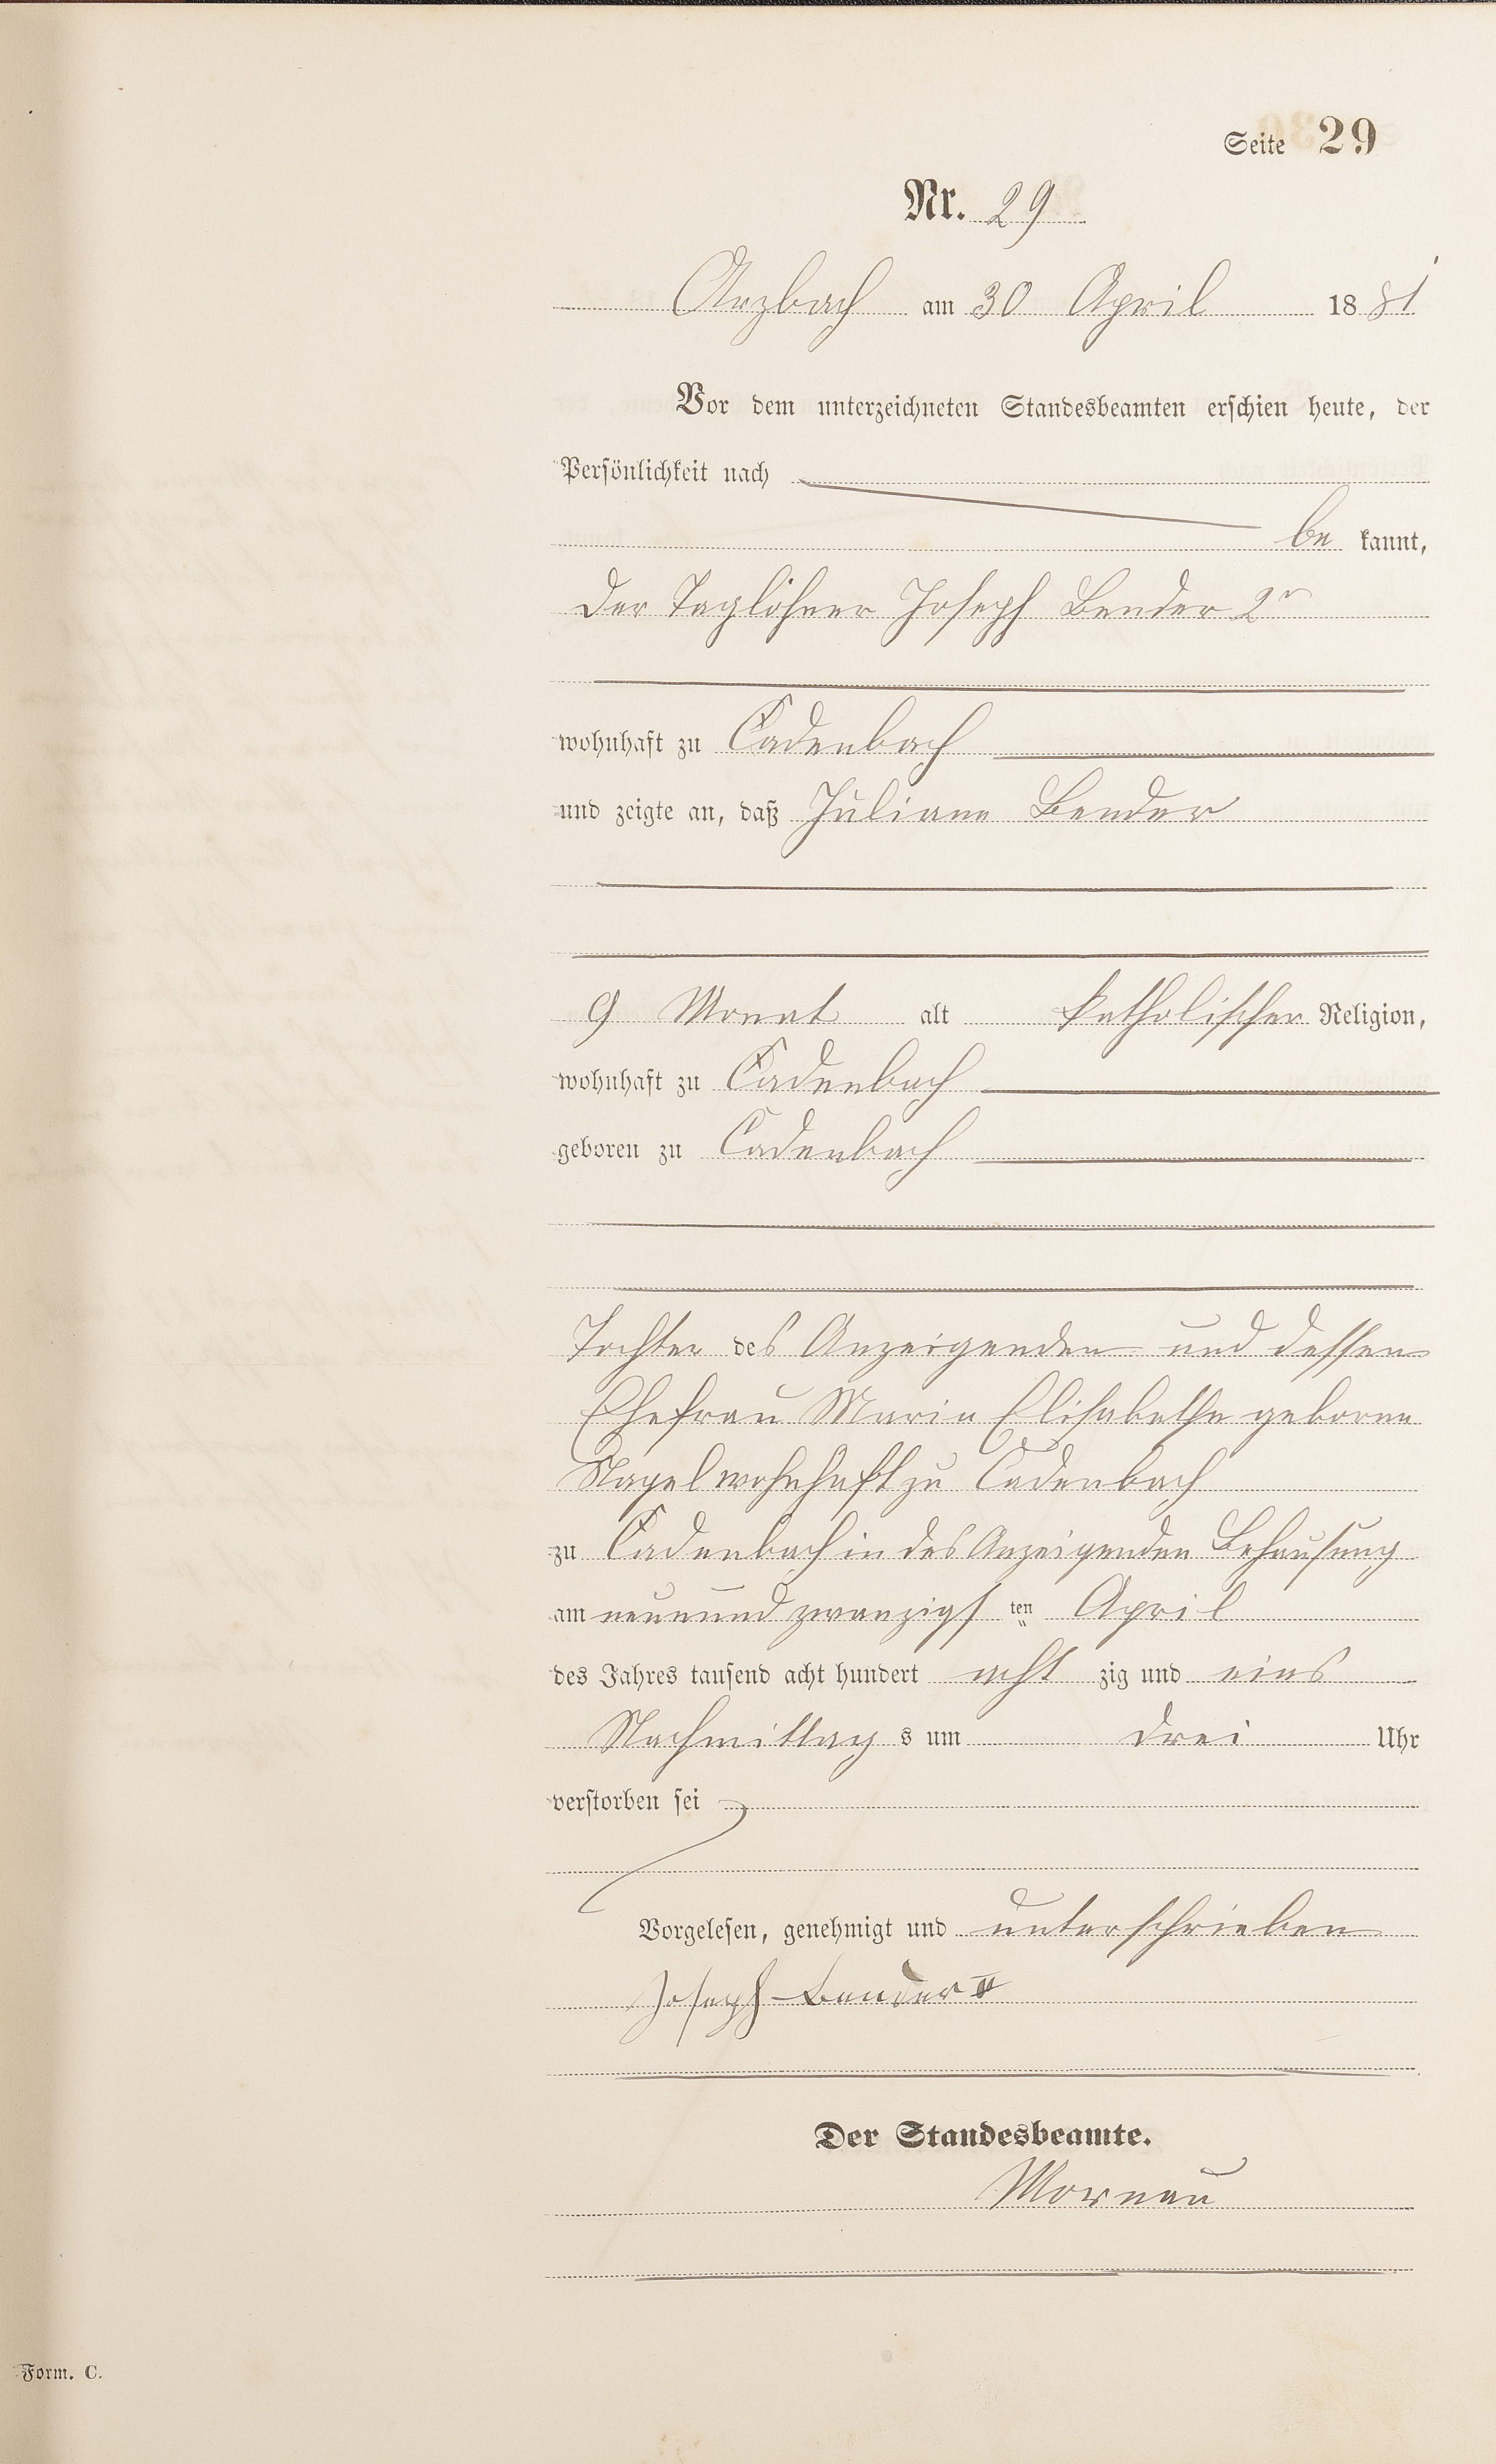 Seite 29
Nr. 29
Arzbach am 30 April 1881
Vor dem unterzeichneten Standesbeamten erschien heute, der
Persönlichkeit nach
be kannt,
der Taglöhner Joseph Bender 2r
wohnhaft zu Cadenbach
und zeigte an, daß Juliane Bender
9 Monat alt katholischer Religion,
wohnhaft zu Cadenbach
geboren zu Cadenbach
Tochter des Anzeigenden und dessen
Ehefrau Maria Elisabethe geborene
Nagel wohnhaft zu Cadenbach
zu Cadenbach in des Anzeigenden Behausung
am neunund zwanzigs ten April
des Jahres tausend acht hundert acht zig und eins
Nachmittag s um drei Uhr
verstorben sei
Vorgelesen, genehmigt und unterschrieben
Joseph Bender II
Der Standesbeamte.
Mornau
Form. C.